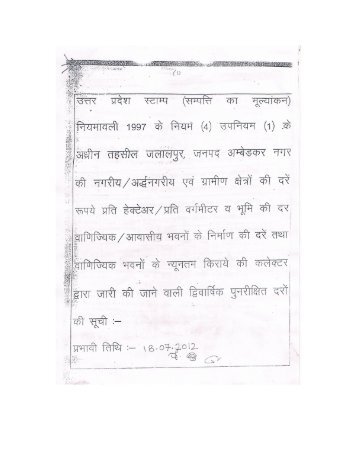 उत्तर प्रदेश स्टाम्प (सम्पत्ति का मूल्यांकन)
नियमावली 1997 के नियम (4) उपनियम (1) के
अधीन तहसील जलालपुर, जनपद अम्बेडकर नगर
की नगरीय/अर्द्धनगरीय एवं ग्रामीण क्षेत्रों की दरें
रूपये प्रति हेक्टेअर/प्रति वर्गमीटर व भूमि की दर
वाणिज्यिक/आवासीय भवनों के निर्माण की दरें तथा
वाणिज्यिक भवनों के न्यूनतम किराये की कलेक्टर
द्वारा जारी की जाने वाली द्विवार्षिक पुनरीक्षित दरों
की सूची :–
प्रभावी तिथि :– 18.07.2012